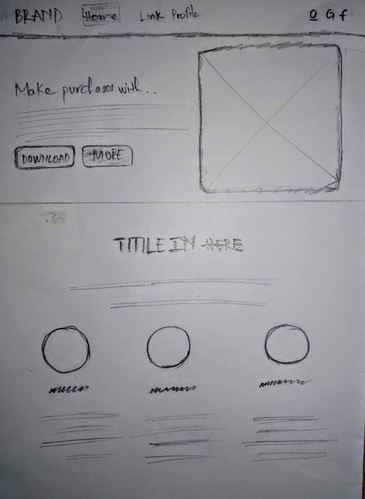 BRAND Home Link Profile G f
Make purchases with...
DOWNLOAD MORE
TITILE IN HERE